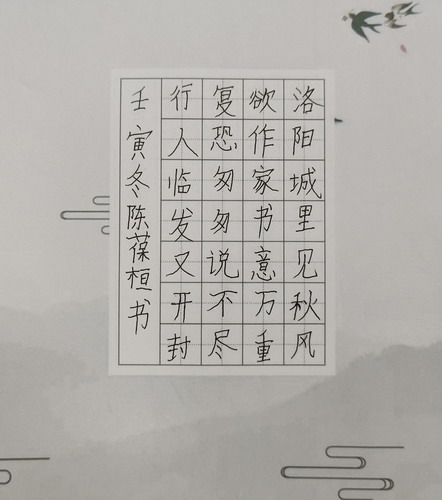 洛阳城里见秋风
欲作家书意万重
复恐匆匆说不尽
行人临发又开封
壬寅冬陈葆桓书